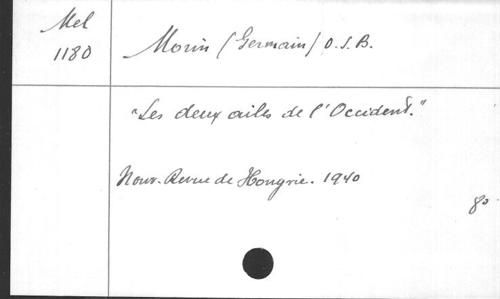 Mel
1180
Morin (Germain) O.S.B.
"Les deux ailes de l'Occident."
Nouv. Revue de Hongrie. 1940
8°